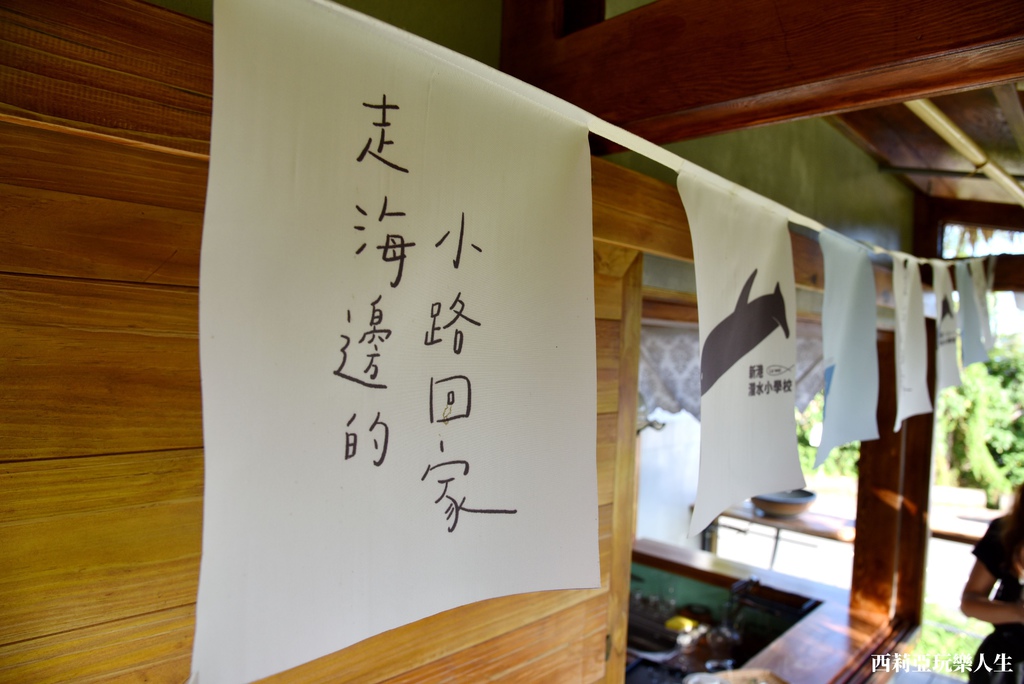 走海邊的
小路回家
新港
潛水小學校
西莉亞玩樂人生